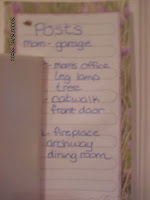 Posts
mom - garage
- moms office
leg lamp
tree
- catwalk
front door
- fireplace
archway
dining room